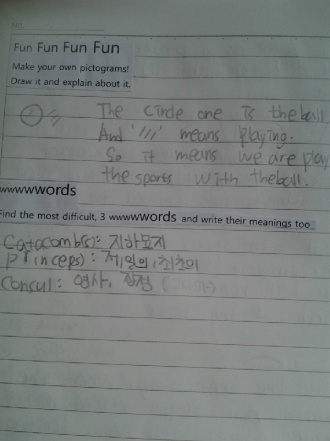 Fun Fun Fun Fun
Make your own pictograms!
Draw it and explain about it.
The Circle one is the ball
And '///' means playing.
So it means we are play
the sports with the ball.
wwwwwwords
Find the most difficult, 3 wwwwwords and write their meanings too
Catacomb(s): 지하묘지
princeps): 제일의, 최초의
Consul: 영사, 집정